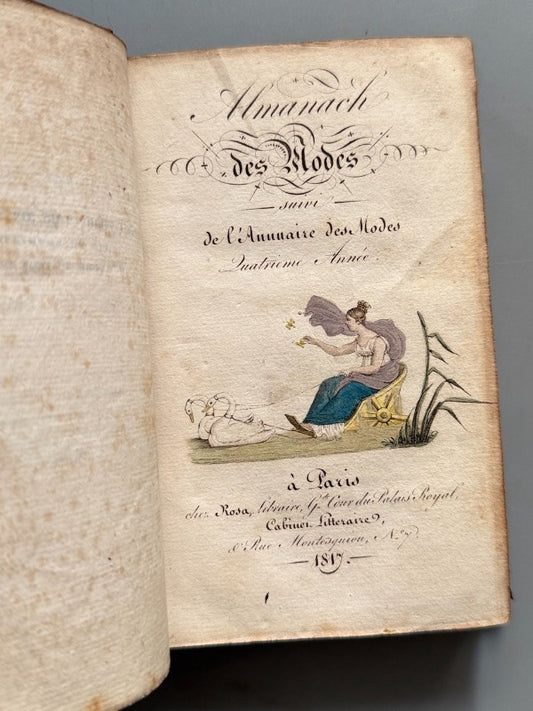 Almanach
des Modes
suivi
de l'Annuaire des Modes
Quatrieme Année.
à Paris
chez Rosa, libraire, Gde. Cour du Palais Royal,
Cabinet Litteraire,
& Rue Montesquiou, No. 7
1817.